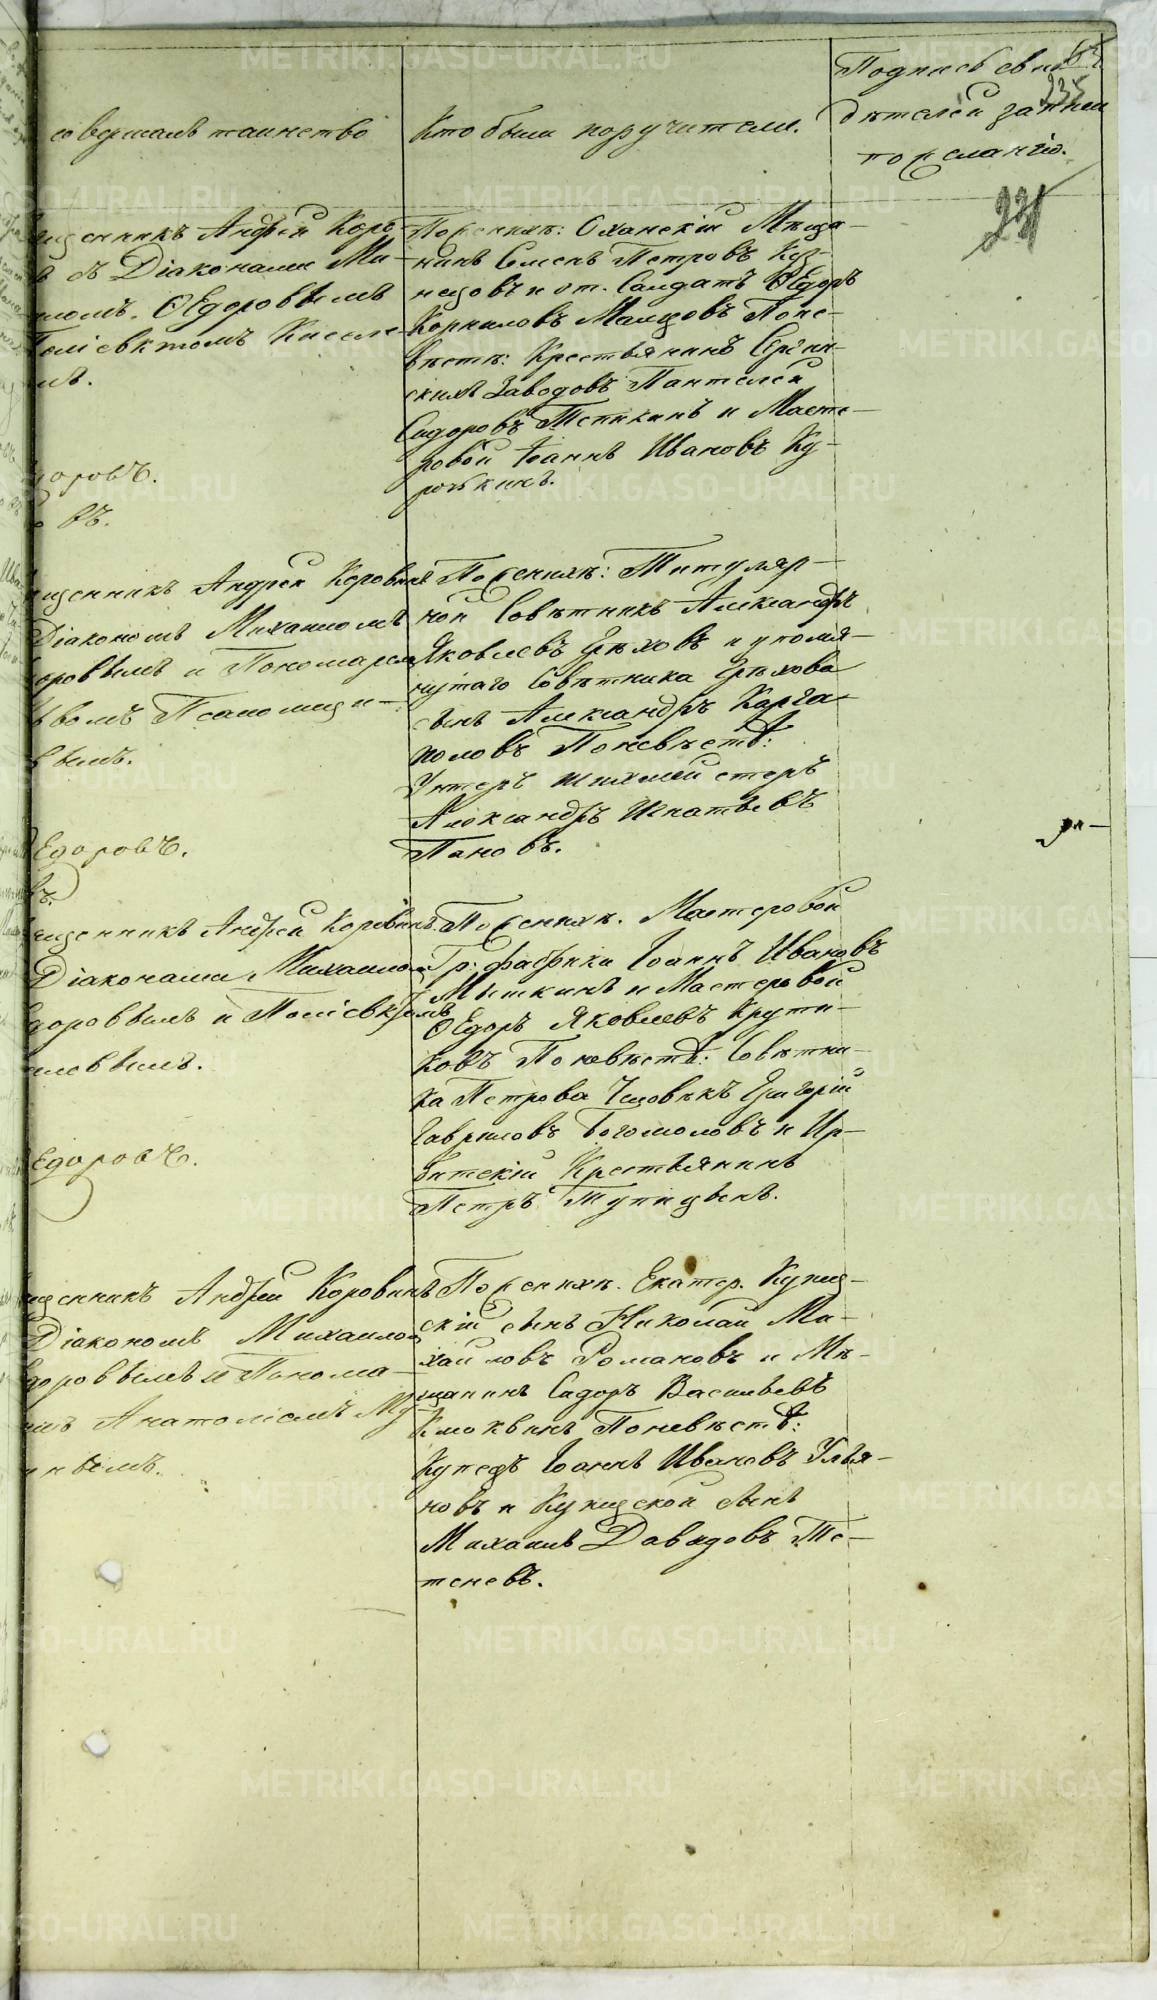 совершалъ таинство
Кто были поручители.
Подпись сви-
дѣтелей записи
по желанію.
235
231
щенникъ Андрей Коро-
въ съ Діаконами Ми-
ломъ Ѳедоровымъ
Поліевктомъ Кисле-
мъ.
доровъ.
въ.
По женихѣ: Оханскій Мѣща-
нинъ Семенъ Петровъ Куз-
нецовъ и от. Солдатъ Ѳедоръ
Корниловъ Мальцовъ По не-
вѣстѣ: Крестьянинъ Сергин-
скихъ Заводовъ Пантелей
Сидоровъ Тепикинъ и Масте-
ровой Іоаннъ Ивановъ Ку-
рочкинъ.
щенникъ Андрей Коровинъ
Діакономъ Михаиломъ
доровымъ и Пономаремъ
вомъ Псаломщи-
вымъ.
Едоровъ.
въ.
По женихѣ: Титуляр-
ной Совѣтникъ Александръ
Яковлевъ Грѣховъ и упомя-
нутаго Совѣтника Грѣхова
сынъ Александръ Карга-
половъ По невѣстѣ:
Унтеръ шихмейстеръ
Александръ Игнатьевъ
Пановъ.
щенникъ Андрей Коровинъ
Діаконами Михаиломъ
доровымъ и Поліевктомъ
ловымъ.
Едоровъ.
По женихѣ. Мастеровой
Гр: фабрики Іоаннъ Ивановъ
Мышкинъ и Мастеровой
Ѳедоръ Яковлевъ Крути-
ковъ По невѣстѣ: Совѣтни-
ка Петрова Человѣкъ Григорій
Гавриловъ Богомоловъ и Ир-
битскій Крестьянинъ
Петръ Тупицынъ.
щенникъ Андрей Коровинъ
Діакономъ Михаиломъ
доровымъ и Понома-
мъ Анатоліемъ Му-
нымъ.
По женихѣ. Екатер. Купец-
скій сынъ Николай Ми-
хайловъ Романовъ и Мѣ-
щанинъ Сидоръ Васильевъ
Клюквинъ По невѣстѣ:
Купецъ Іоаннъ Ивановъ Улья-
новъ и Купецской сынъ
Михаилъ Давидовъ Те-
теневъ.
METRIKI.GASO-URAL.RU